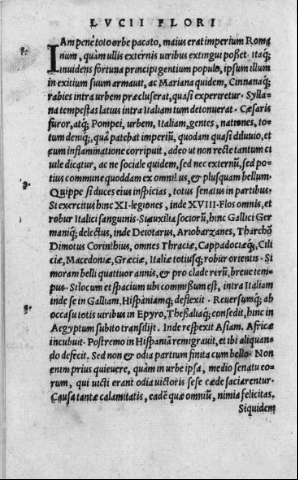 LVCII FLORI
IAm penè toto orbe pacato, maius erat imperium Roma
num, quàm ullis externis uribus extingui posset. Itaq;
inuidens fortuna principi gentium populo, ipsum illum
in exitium suum armauit, ac Mariana quidem, Cinnanaq;
rabies intra urbem præcluserat, quasi experiretur. Sylla-
na tempestas latius intra Italiam tum detonuerat. Cæsaris
furor, atq; Pompei, urbem, Italiam, gentes, nationes, to-
tum deniq;, quà patebat imperiū, quodam quasi diluuio, et
cum inflammatione corripuit, adeo ut non recte tantum ci
uile dicatur, ac ne sociale quidem, sed nec externū, sed po-
tius commune quoddam ex omnibus, & plusquam bellum.
Quippe si duces eius inspicias, totus senatus in partibus.
Si exercitus hinc XI. legiones, inde XVIII. Flos omnis, et
robur Italici sanguinis. Si auxilia sociorū, hinc Gallici Ger
maniq; delectus, inde Deiotarus, Ariobarzanes, Tharcho
Dimotus Corinthius, omnes Thraciæ, Cappadociæq;, Cili
ciæ, Macedoniæ, Græciæ, Italiæ totiusq; robur orientis. Si
moram belli quatuor annis, & pro clade rerū, breue tem-
pus. Si locum et spacium ubi commissum est, intra Italiam
inde se in Galliam, Hispaniamq; deflexit. Reuersumq; ab
occasu totis uiribus in Epyro, Thessaliaq; consedit, hinc in
Aegyptum subito transilijt. Inde respexit Asiam. Africæ
incubuit. Postremo in Hispaniā remigrauit, et ibi aliquan
do defecit. Sed non & odia partium finita cum bello. Non
enim prius quieuere, quàm in urbe ipsa, medio senatu eo-
rum, qui uicti erant odia uictoris sese cæde saciarentur.
Causa tantæ calamitatis, eadē quæ omniū, nimia felicitas.
Siquidem